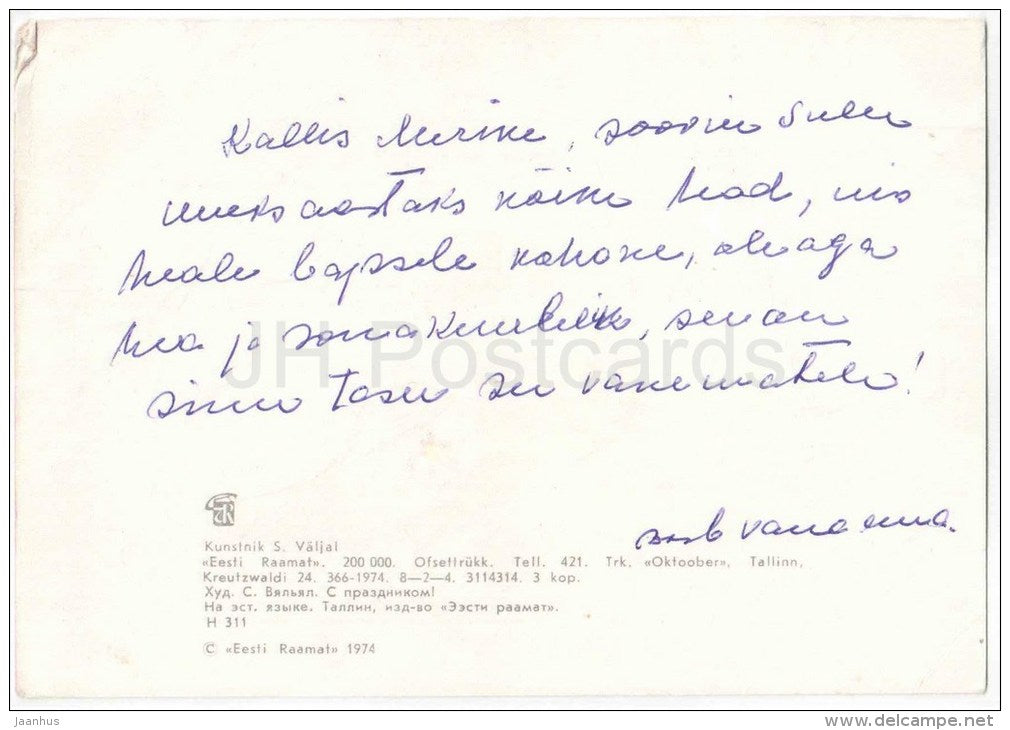 Kallis Merike, soovin Sulle
uueks aastaks kõike head, mis
heale lapsele kohane, ole aga
hea ja sõnakuulelik, see on
sinu tasu su vanematele!
soovib vanaema.
JH Postcards
TR
Kunstnik S. Väljal
«Eesti Raamat». 200 000. Ofsettrükk. Tell. 421. Trk. «Oktoober», Tallinn,
Kreutzwaldi 24. 366-1974. 8—2—4. 3114314. 3 kop.
Худ. С. Вяльял. С праздником!
На эст. языке. Таллин, изд-во «Ээсти раамат».
H 311
© «Eesti Raamat» 1974
jaanhus
www.delcampe.net